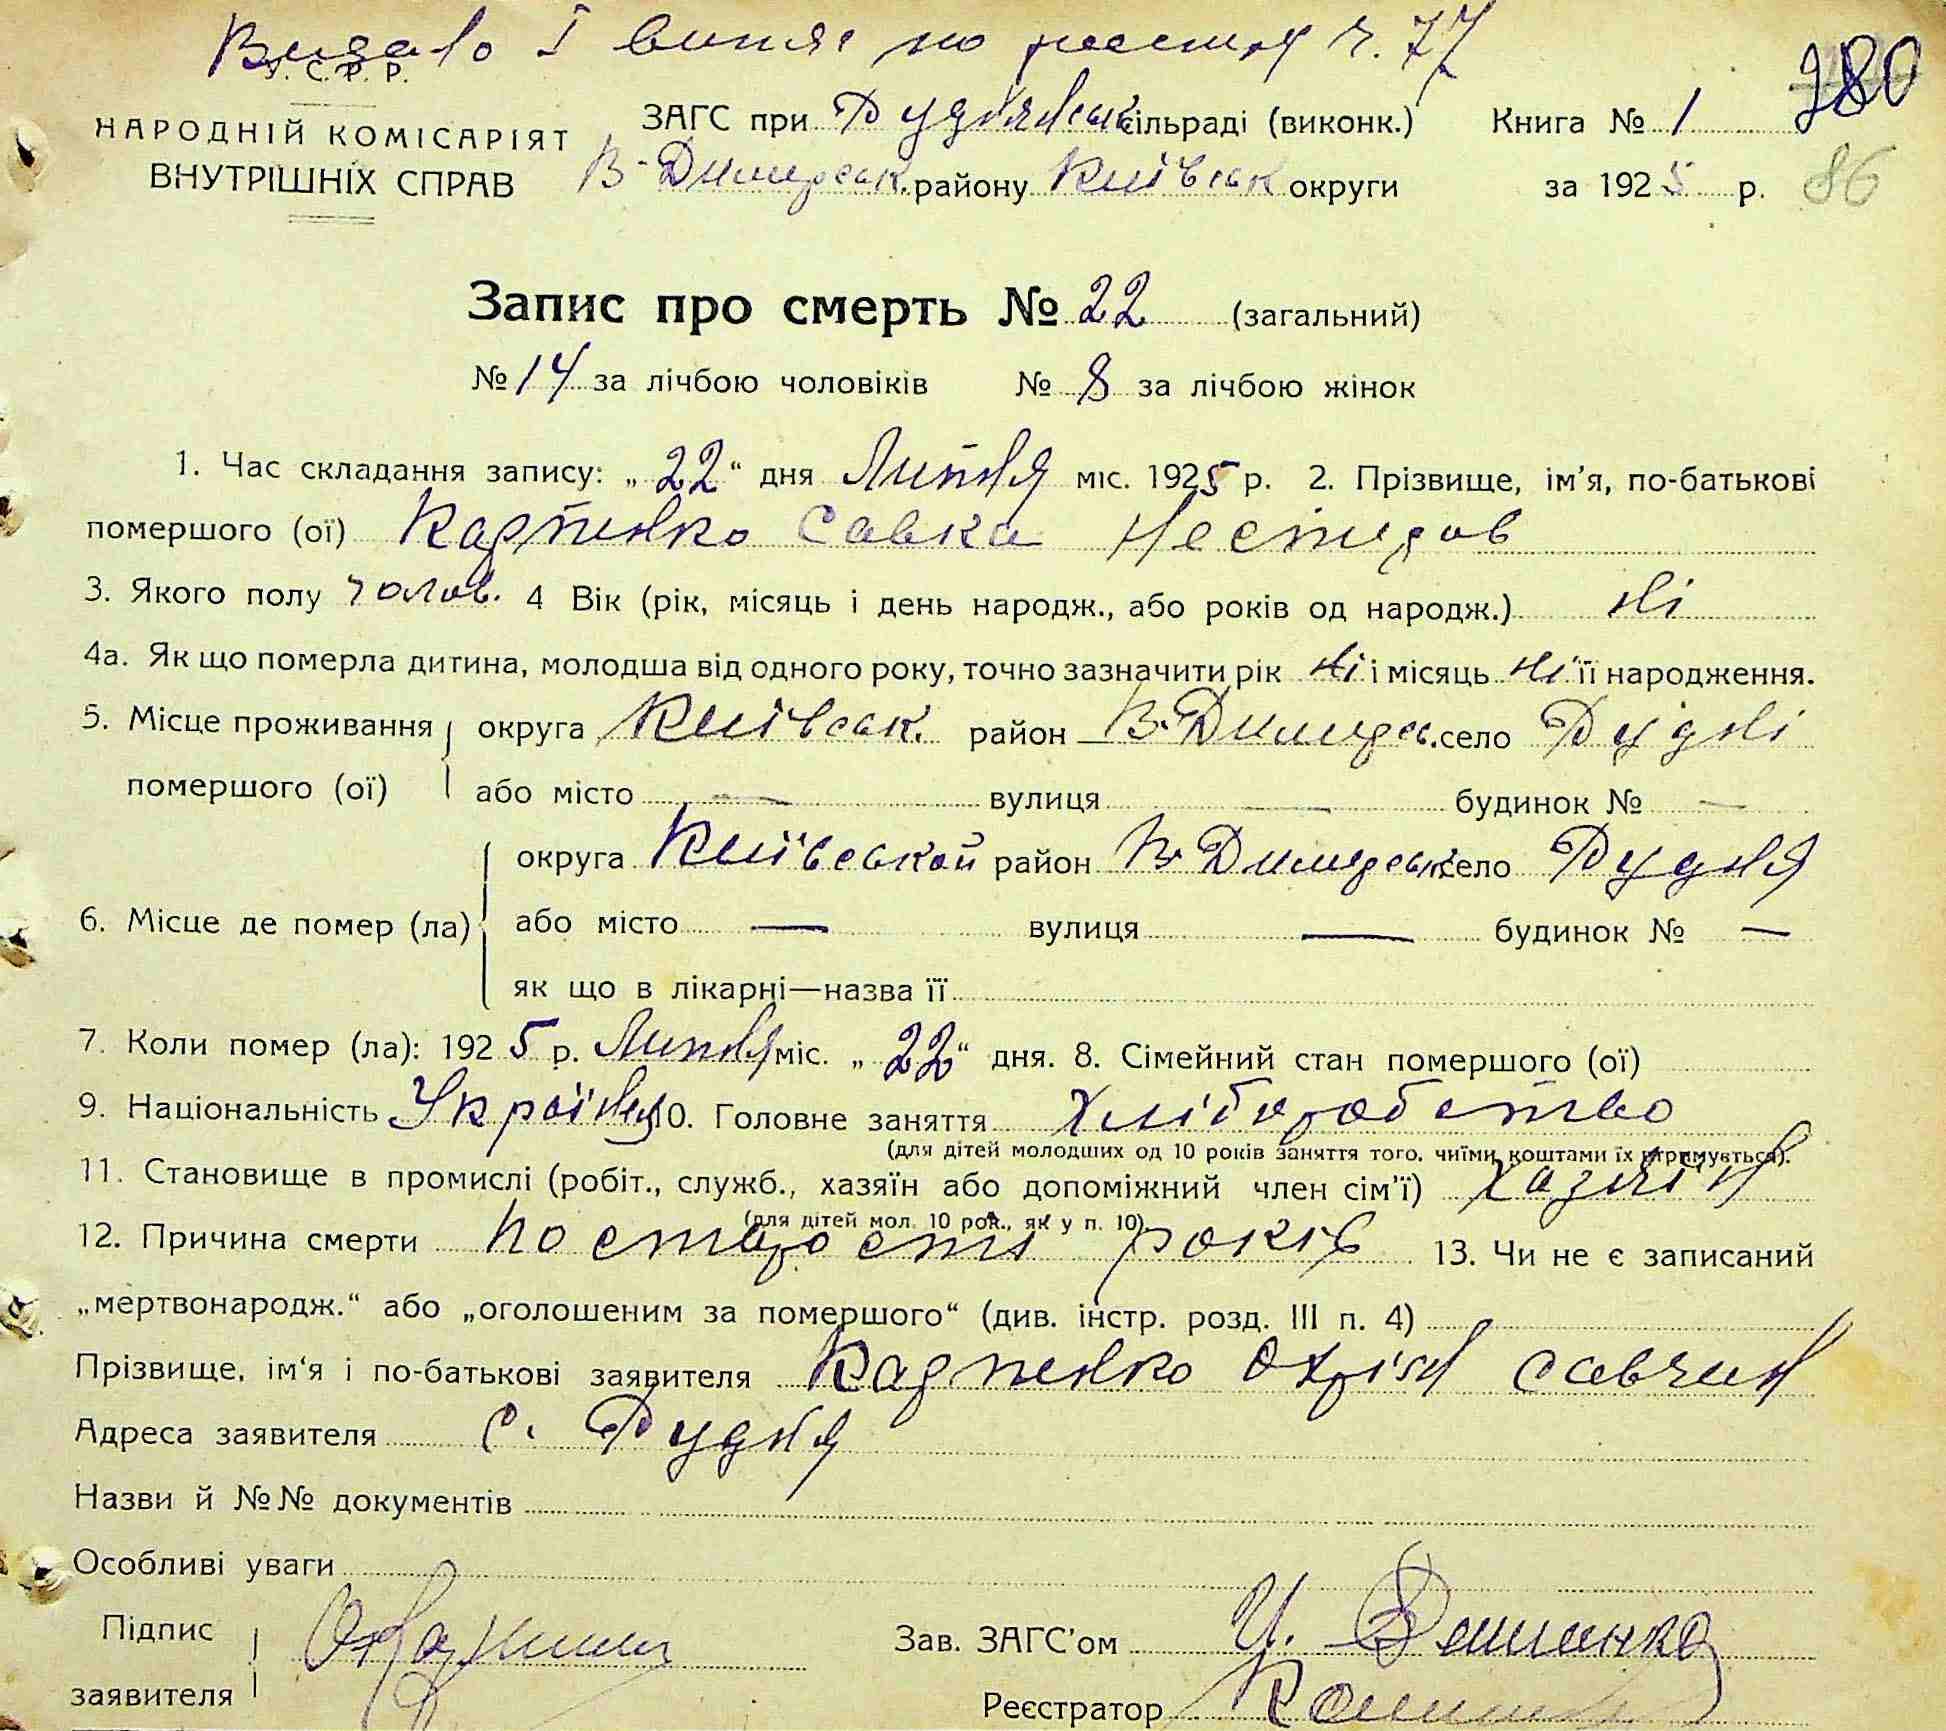 Видано 1 витяг по реестру ч. 77
У. С. Р. Р.
780
НАРОДНІЙ КОМІСАРІЯТ
ВНУТРІШНІХ СПРАВ
ЗАГС при Руднянськ сільраді (виконк.) Книга № 1
В-Димерськ. району Київськ округи за 1925 р. 86
Запис про смерть № 22 (загальний)
№ 14 за лічбою чоловіків № 8 за лічбою жінок
1. Час складання запису: „22“ дня Липня міс. 1925 р. 2. Прізвище, ім'я, по-батькові
помершого (ої) Карпенко Савка Нестеров
3. Якого полу чолов. 4 Вік (рік, місяць і день народж., або років од народж.) ні
4а. Як що померла дитина, молодша від одного року, точно зазначити рік ні і місяць ні її народження.
5. Місце проживання округа Київськ. район В-Димерс. село Рудні
помершого (ої) або місто — вулиця — будинок № —
округа Київськой район В-Димерськ село Рудня
6. Місце де помер (ла) або місто — вулиця — будинок № —
як що в лікарні—назва її
7. Коли помер (ла): 1925 р. Липня міс. „22“ дня. 8. Сімейний стан помершого (ої)
9. Національність Українец 10. Головне заняття Хліборобство
(для дітей молодших од 10 років заняття того, чиїми коштами їх утримується).
11. Становище в промислі (робіт., служб., хазяїн або допоміжний член сім'ї) хазяїн
(для дітей мол. 10 рок., як у п. 10).
12. Причина смерти по старости років 13. Чи не є записаний
„мертвонародж.“ або „оголошеним за помершого“ (див. інстр. розд. III п. 4)
Прізвище, ім'я і по-батькові заявителя Карпенко Охрім савчин
Адреса заявителя с. Рудня
Назви й №№ документів
Особливі уваги
Підпис
заявителя
Зав. ЗАГС'ом
Реєстратор